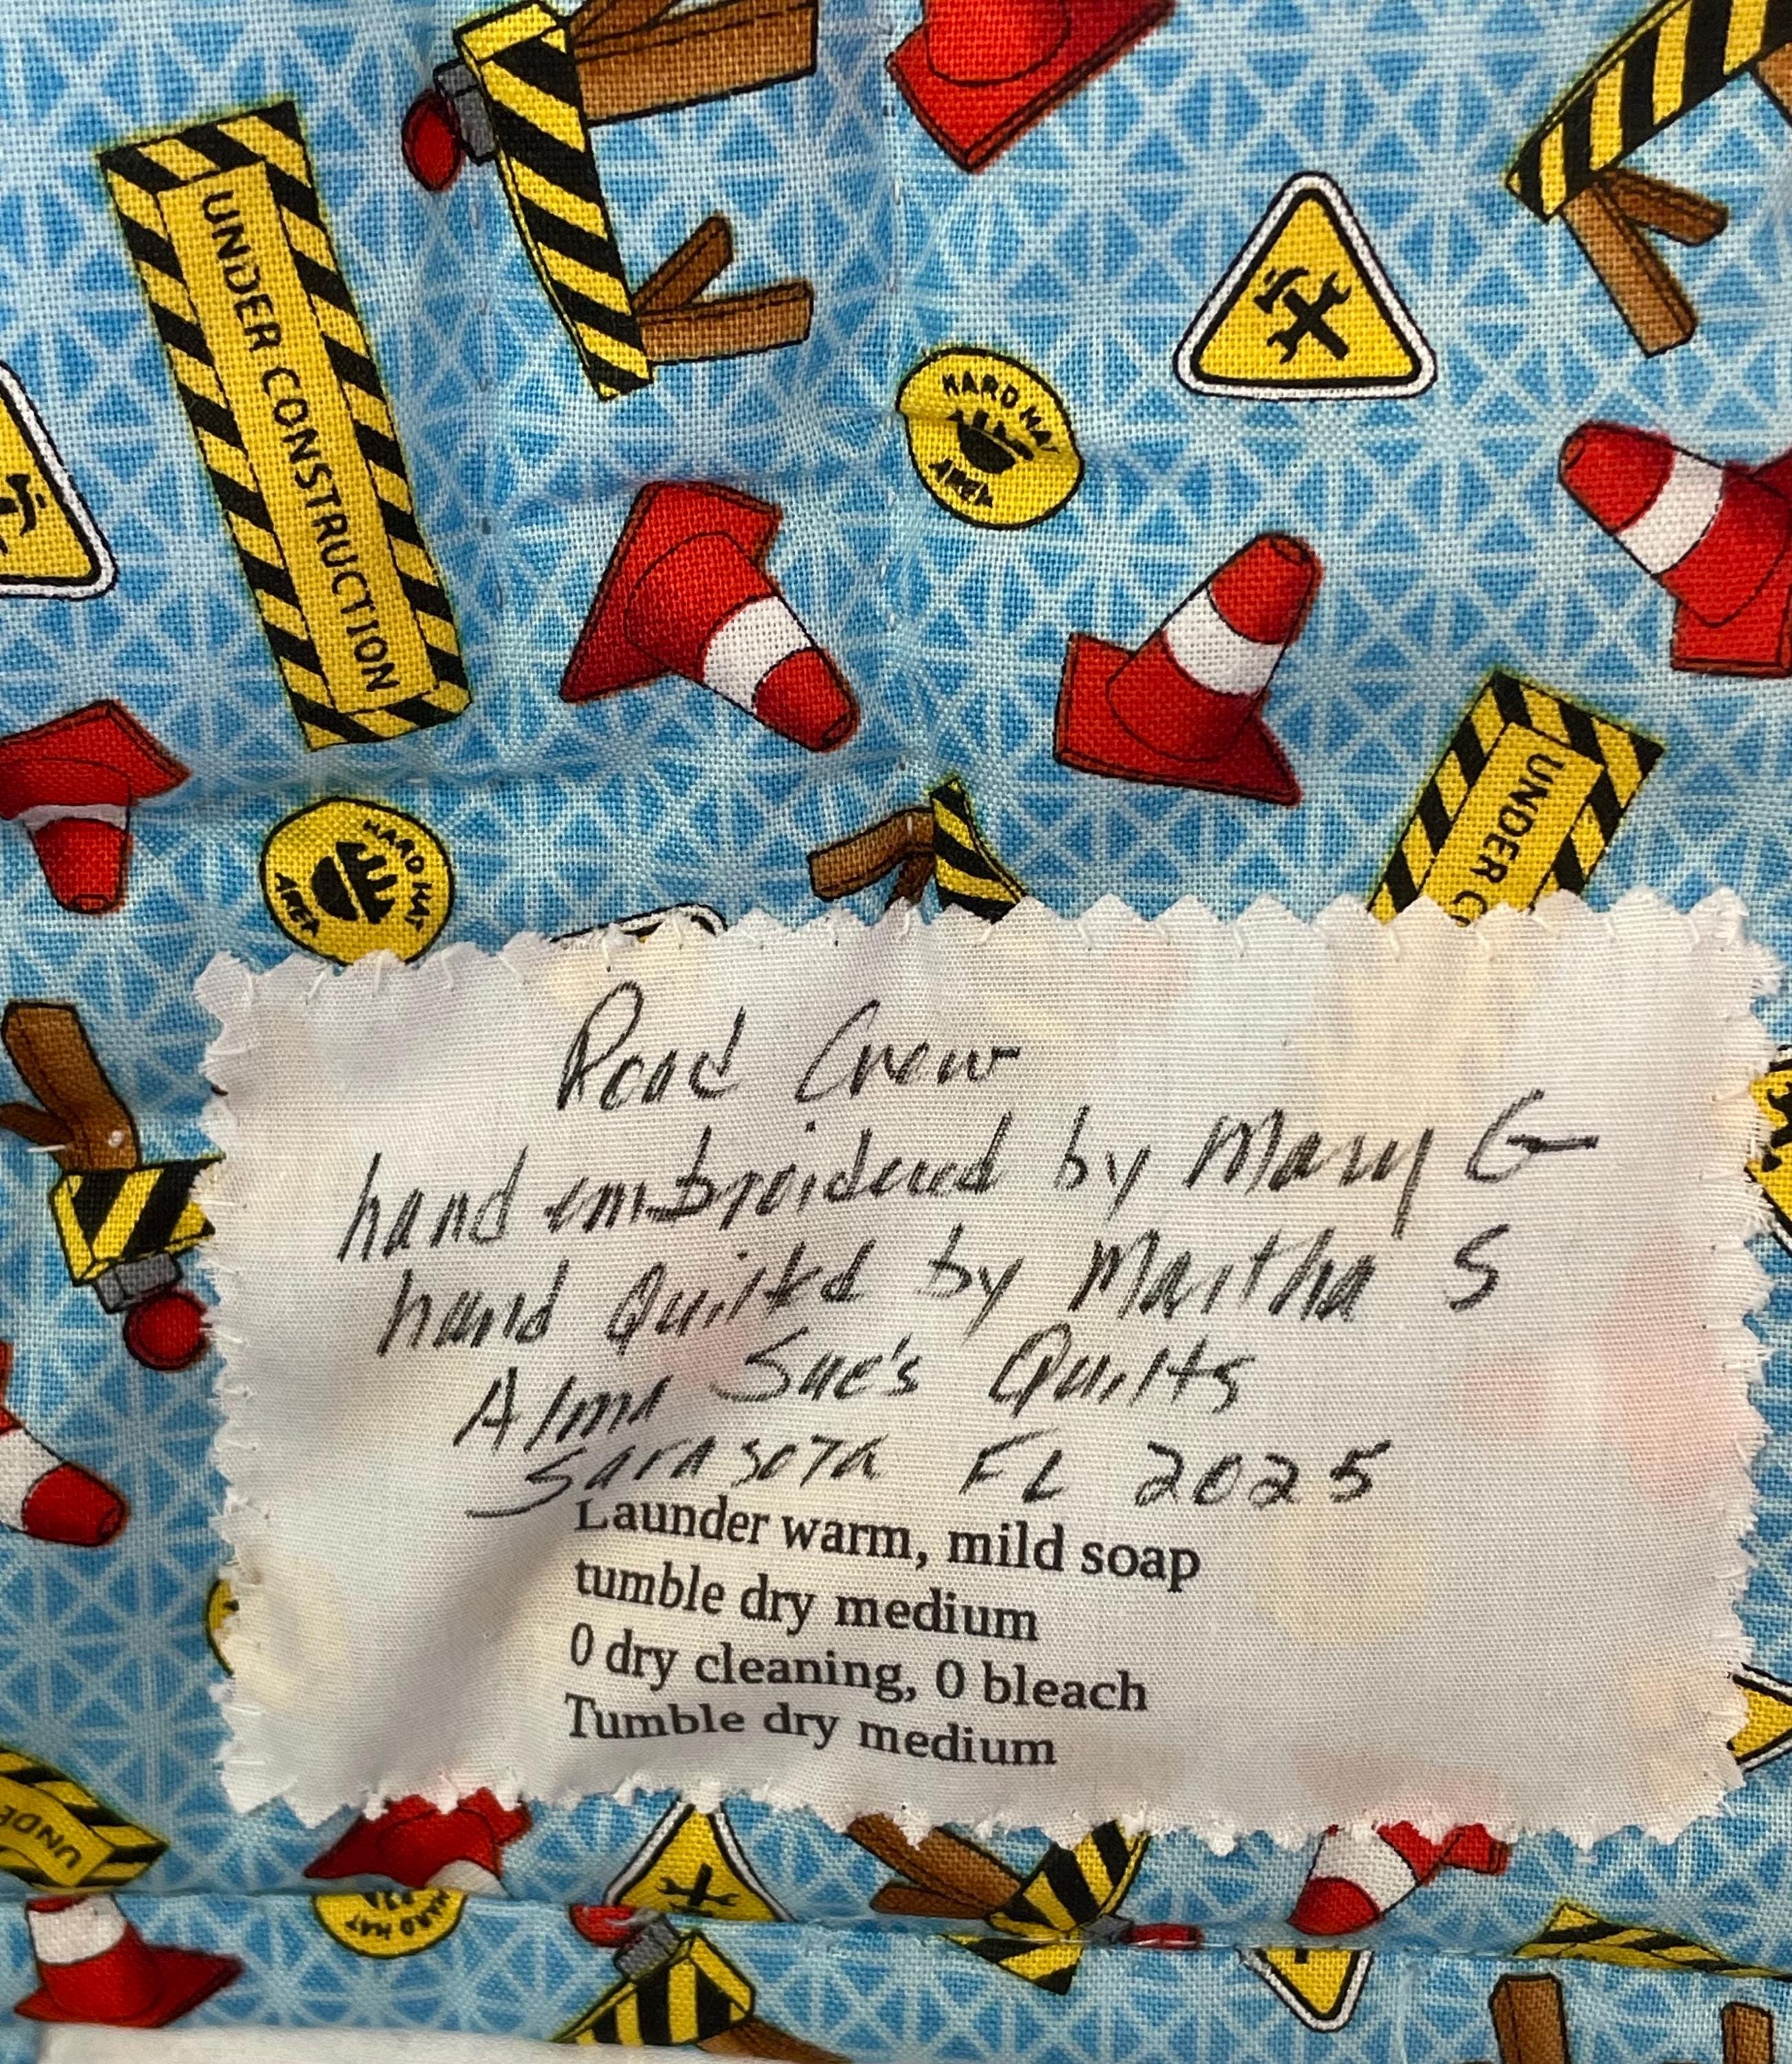 UNDER CONSTRUCTION
HARD HAT
AREA
HARD HAT
AREA
UNDER C
Road Crew
hand embroidered by Mary G
hand Quilted by Martha S
Alma Sue's Quilts
Sarasota FL 2025
Launder warm, mild soap
tumble dry medium
0 dry cleaning, 0 bleach
Tumble dry medium
UNDE
HARD HAT